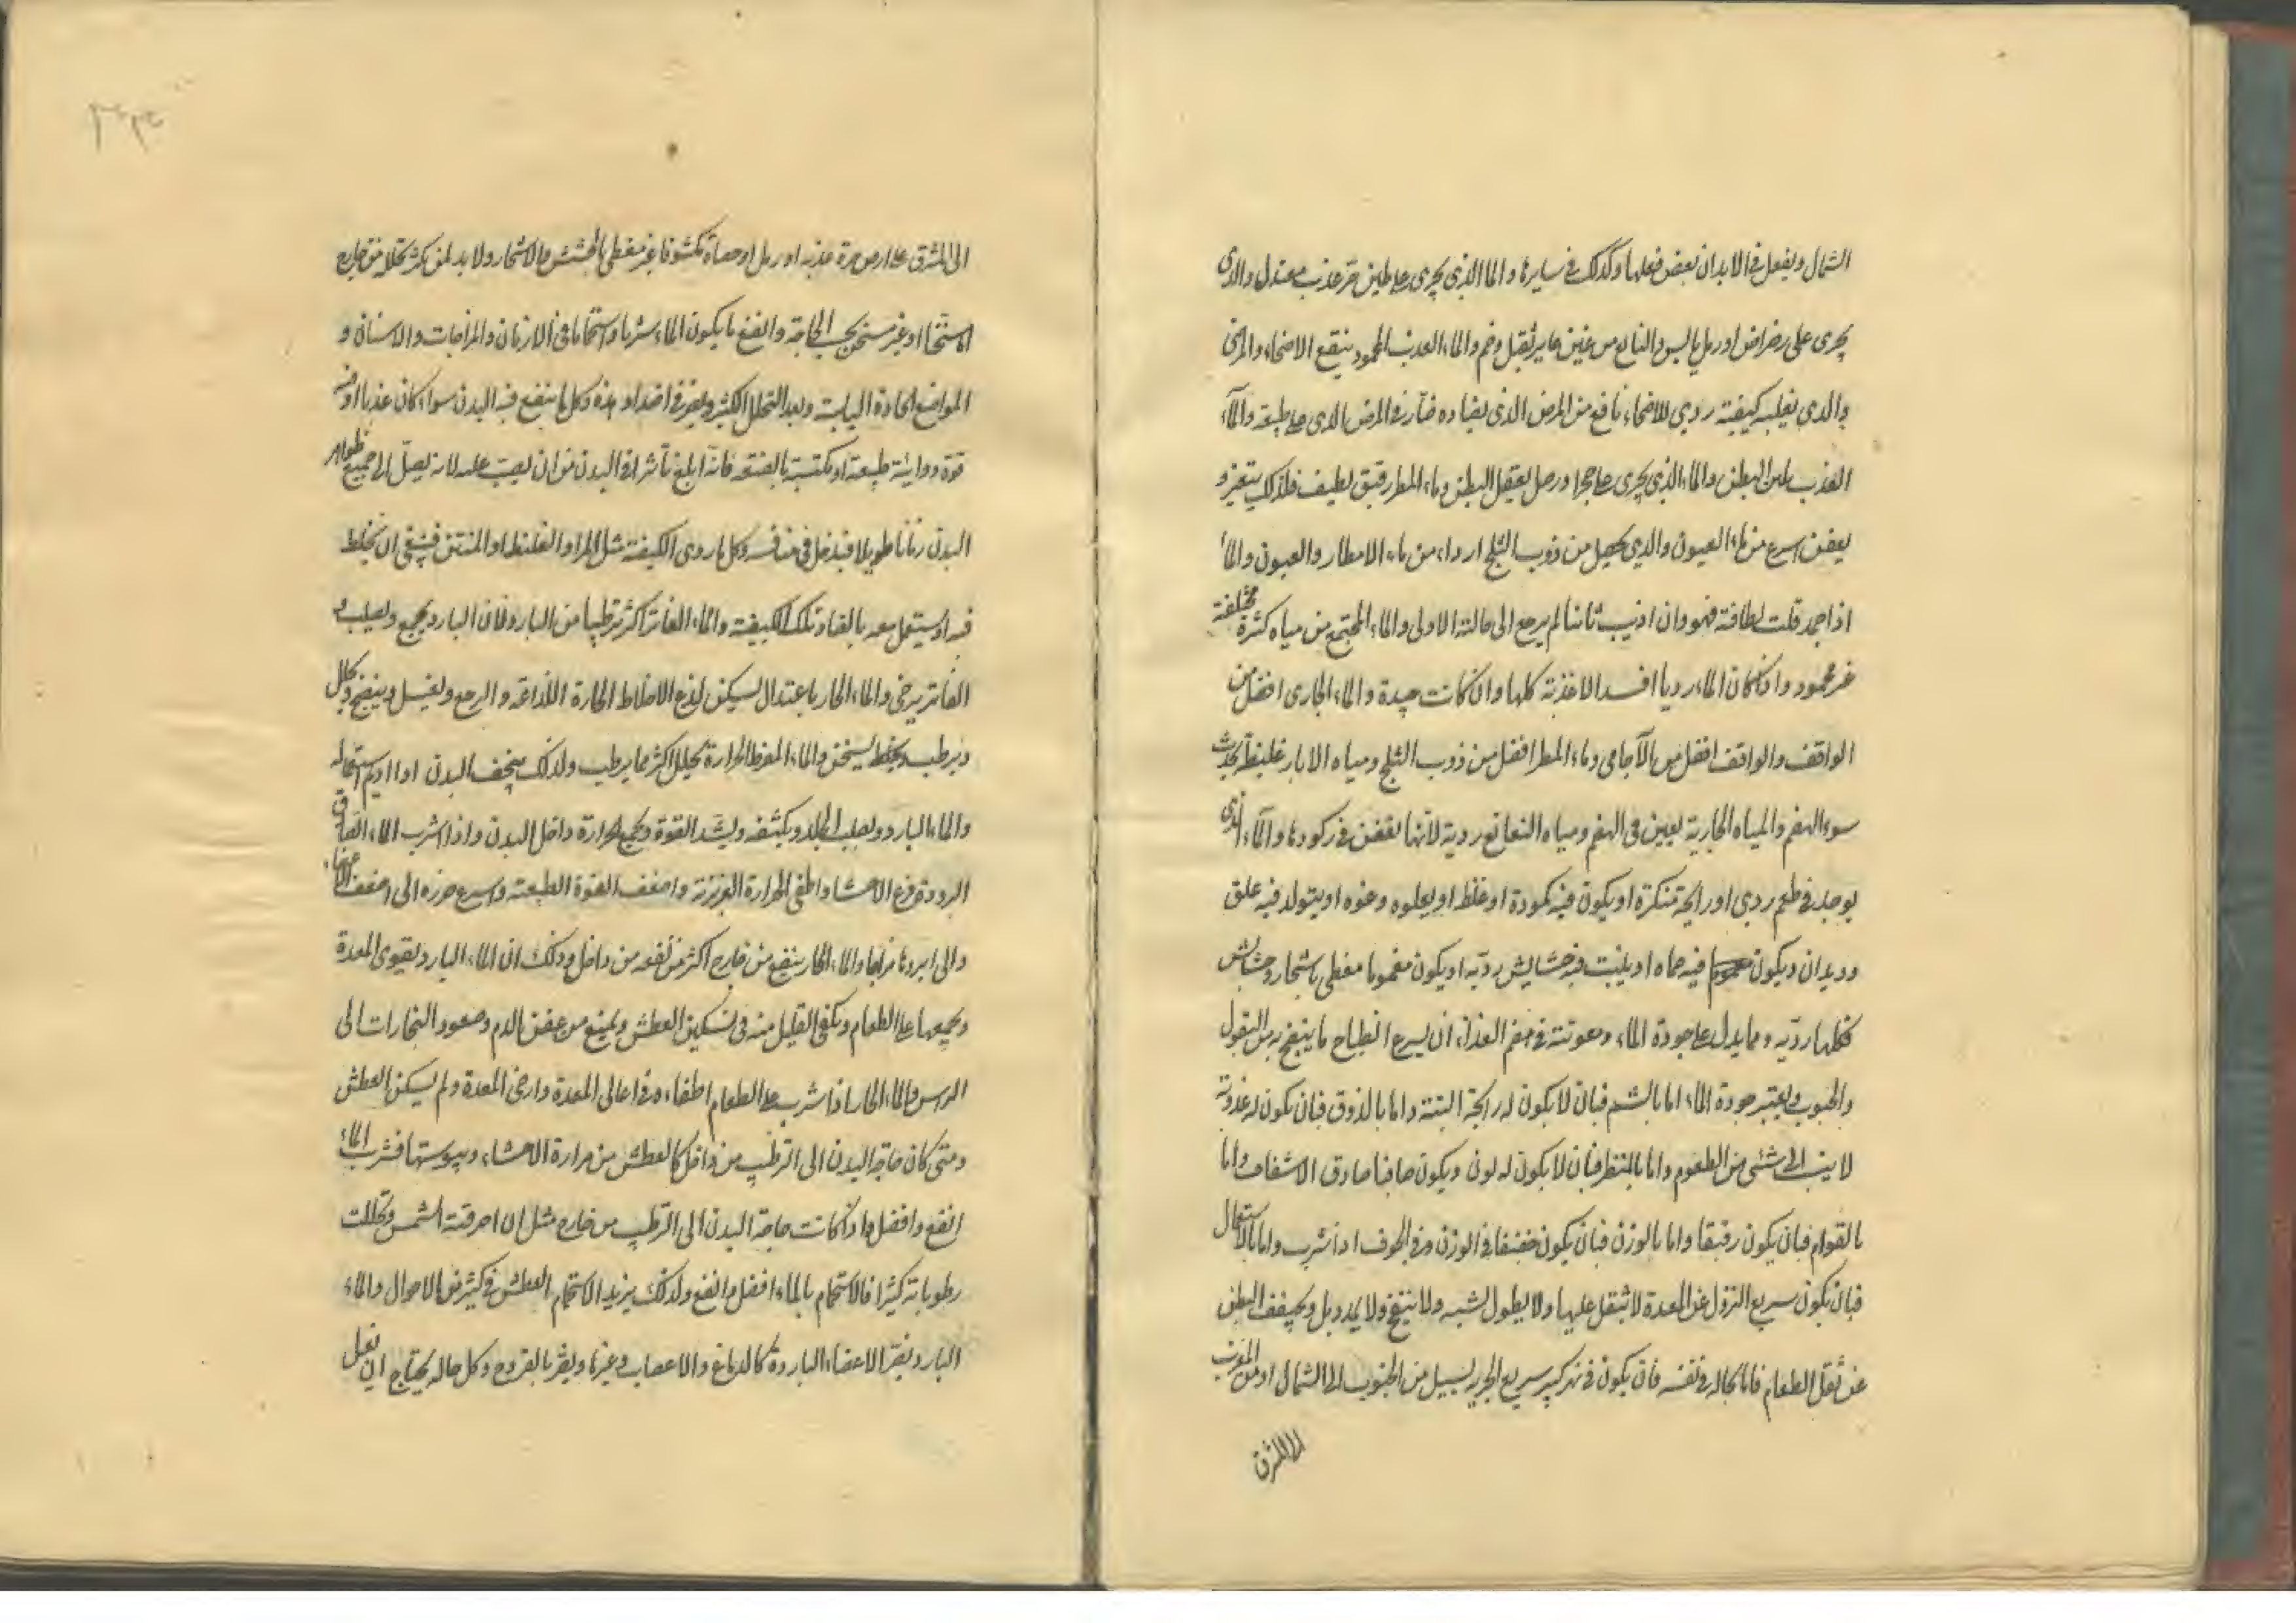 الشمال ويفعل في الابدان بعض فعلها وكذلك في سايرها والما الذي يجرى على طين حر عذب معتدل والذى
يجرى على رضراض او رمل يابس والنابع من عين ثقيل وخم والماء العذب المحمود ينفع الاصحاء والمرضى
والذى تغلبه كيفية ردي للاصحاء نافع من المرض الذى يضاده ضار في المرض الذى على طبيعته والماء
العذب يلين البطن والماء الذي يجرى على حجر او رمل يعقل البطن وماء المطر رقيق لطيف فلذلك يتغير و
يعفن اسرع من ماء العيون والذي يحصل من ذوب الثلج اردا من ماء الامطار والعيون والماء
اذا جمد قلت لطافته فهو وان اذيب ثانيا لم يرجع الى حالته الاولى والماء المجتمع من مياه كثيرة مختلفة
غير محمود واذا كان الماء رديا افسد الاغذية كلها وان كانت جيدة والماء الجارى افضل من
الواقف والواقف افضل من الآجامى وماء المطر افضل من ذوب الثلج ومياه الابار غليظة يحدث
سوء الهضم والمياه الجارية يعين فى الهضم ومياه النقايع ردية لأنها تعفن في ركودها والماء الذى
يوجد فى طعم ردي او رائحة منكرة او يكون فيه كمودة او غلظ او يعلوه رغوه او يتولد فيه علق
وديدان ويكون فيه حماه او ينبت فيه حشايش رديه او يكون مغموما مغطى باشجار وحشايش
فكلها رديه ومما يدل على جودة الماء ومعونته في هضم الغذاء ان يسرع انطباخ ما ينطبخ به من البقول
والحبوب ويعتبر جودة الماء اما بالشم فبان لا يكون له رائحة البتة واما بالذوق فبان يكون له عذوبة
لا ينسب الى شئى من الطعوم واما بالمنظر فبان لا يكون له لون ويكون صافيا صادق الاشفاف واما
بالقوام فبان يكون رقيقا واما بالوزن فبان يكون خفيفا فى الوزن وفى الجوف اذا شرب واما بالاستعمال
فبان يكون سريع النزول عن المعدة لا يثقل عليها ولا يطول لبثه ولا ينفخ ولا يمدد بل ويخفف البطن
عن ثقل الطعام فاما بحاله فى نفسه فان يكون فى نهر كبير سريع الجريه يسيل من الجنوب الى الشمال او من المغرب
الى المشرق
الى المشرق على ارض حرة عذبه او رمل او حصاة مكشوفا غير مغطى بالحشيش والاشجار ولا بد لمن يكثر تحلله من
او غير مسخن بحسب الحاجة وانفع ما يكون الماء شربا واستحماما فى الازمان والمزاجات والاسنان و
المواضع الحادة اليابسة وبعد التحلل الكثير ويضر فى اضداد هذه وكل ما ينتفع فيه البدن سواء كان عذبا او فيه
قوة دوائية طبيعية او مكتسبة بالصنعه فانه ابلغ تأثيرا فى البدن من ان يصب عليه لانه يصل الى جميع ظواهر
البدن زمانا طويلا فيدخل فى منافسه وكل ما ردى الكيفية مثل المر او الغليظ او المنتن فينبغى ان يخلط
فيه او يستعمل بعد ما يضاد تلك الكيفية والماء الفاتر اكثر ترطيبا من البارد لان البارد يجمع ويصلب و
الفاتر يرخى والماء الحار باعتدال يسكن لذع الاخلاط الحارة اللذاعه والرجع ويغسل وينضج ويحلل
ويرطب ويسخن والماء المفرط الحرارة يحلل اكثر مما يرطب ولذلك يجفف البدن اذا اديم استعماله
والماء البارد ويصلب الجلد ويكثفه ويشد القوة ويجمع الحرارة داخل البدن واذا شرب الماء الصادق
البرد قرع الاحشا واطفى الحرارة الغريزية واضعف القوة الطبيعية واسرع ضرره الى اضعف الاعضاء
والى ابردها مزاجا والماء الحار ينفع من خارج اكثر من نفعه من داخل وذلك ان الماء البارد يقوى المعدة
ويجمعها على الطعام ويكفى القليل منه فى تسكين العطش ويمنع من عفن الدم وصعود البخارات الى
الراس والماء الحار اذا شرب على الطعام اطفاءه فى اعالى المعدة وارخى المعدة ولم يسكن العطش
ومتى كان حاجة البدن الى الترطيب من داخل كالعطش من حرارة الاحشاء ويبوستها فشرب الماء
انفع وافضل واذا كانت حاجة البدن الى الترطيب من خارج مثل ان احرقته الشمس وتحللت
رطوباته كثيرا فالاستحمام بالماء افضل وانفع ولذلك يزيد الاستحمام العطش فى كثير من الاحوال والماء
البارد يضر الاعضاء الباردة كالدماغ والاعصاب وغيرها ويضر بالقروح وكل حاله يحتاج ان تعمل